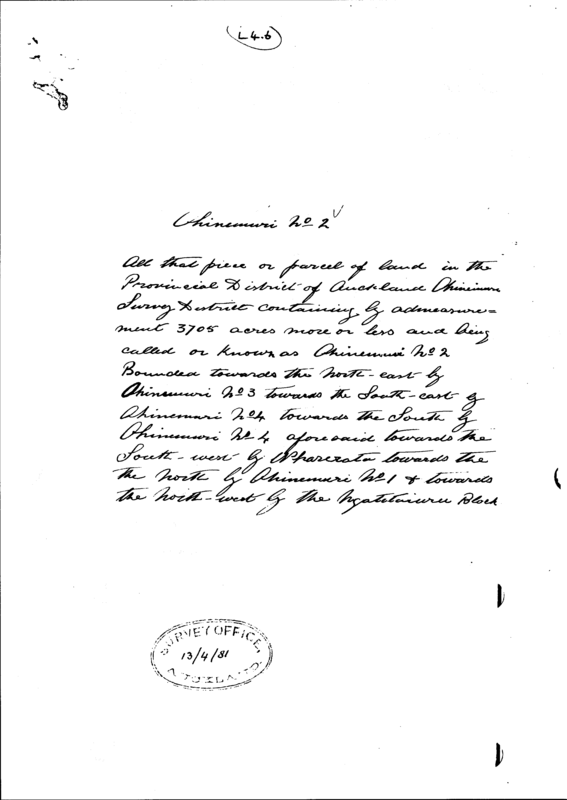 L4.6
Ohinemuri No 2
All that piece or parcel of land in the
Provincial District of Auckland Ohinemuri
Survey District containing by admeasure=
ment 3705 acres more or less and being
called or known as Ohinemuri No 2
Bounded towards the North-east by
Ohinemuri No 3 towards the South-east by
Ohinemuri No 4 towards the South by
Ohinemuri No 4 aforesaid towards the
South-west by towards the
the North by Ohinemuri No 1 & towards
the North-west by the Block
SURVEY OFFICE,
13/4/81
AUCKLAND.